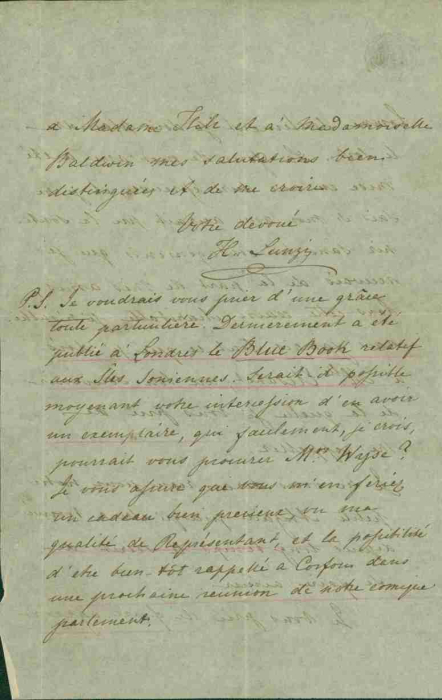 a Madame Fels et a' Madamoiselle
Baldwin mes salutations bien
distinguées et de me croire
Votre devoué
H. Lunzi
P.S. Je voudrais vous prier d'une grace
toute particulière. Dernierement a eté
publié à Londres le Blue Book relatif
aux Iles Ioniennes. Serait il possible
moyenant votre intercession d'en avoir
un exemplaire, qui facilement, je crois,
pourrait vous procurer Mr Wyse?
Je vous assure que vous m'en feriez
un cadeau bien precieux vu ma
qualité de Représentant et la possibilité
d'etre bien-tôt rappellé à Corfou dans
une prochaine reunion de notre comique
parlement.